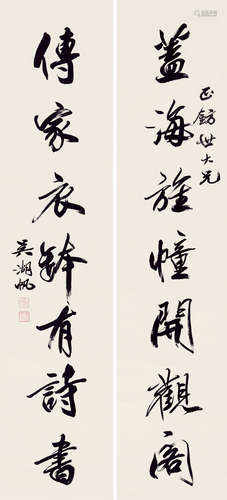 蓋海旌幢開觀閣
正鈁世大兄
傳家衣缽有詩書
吳湖帆